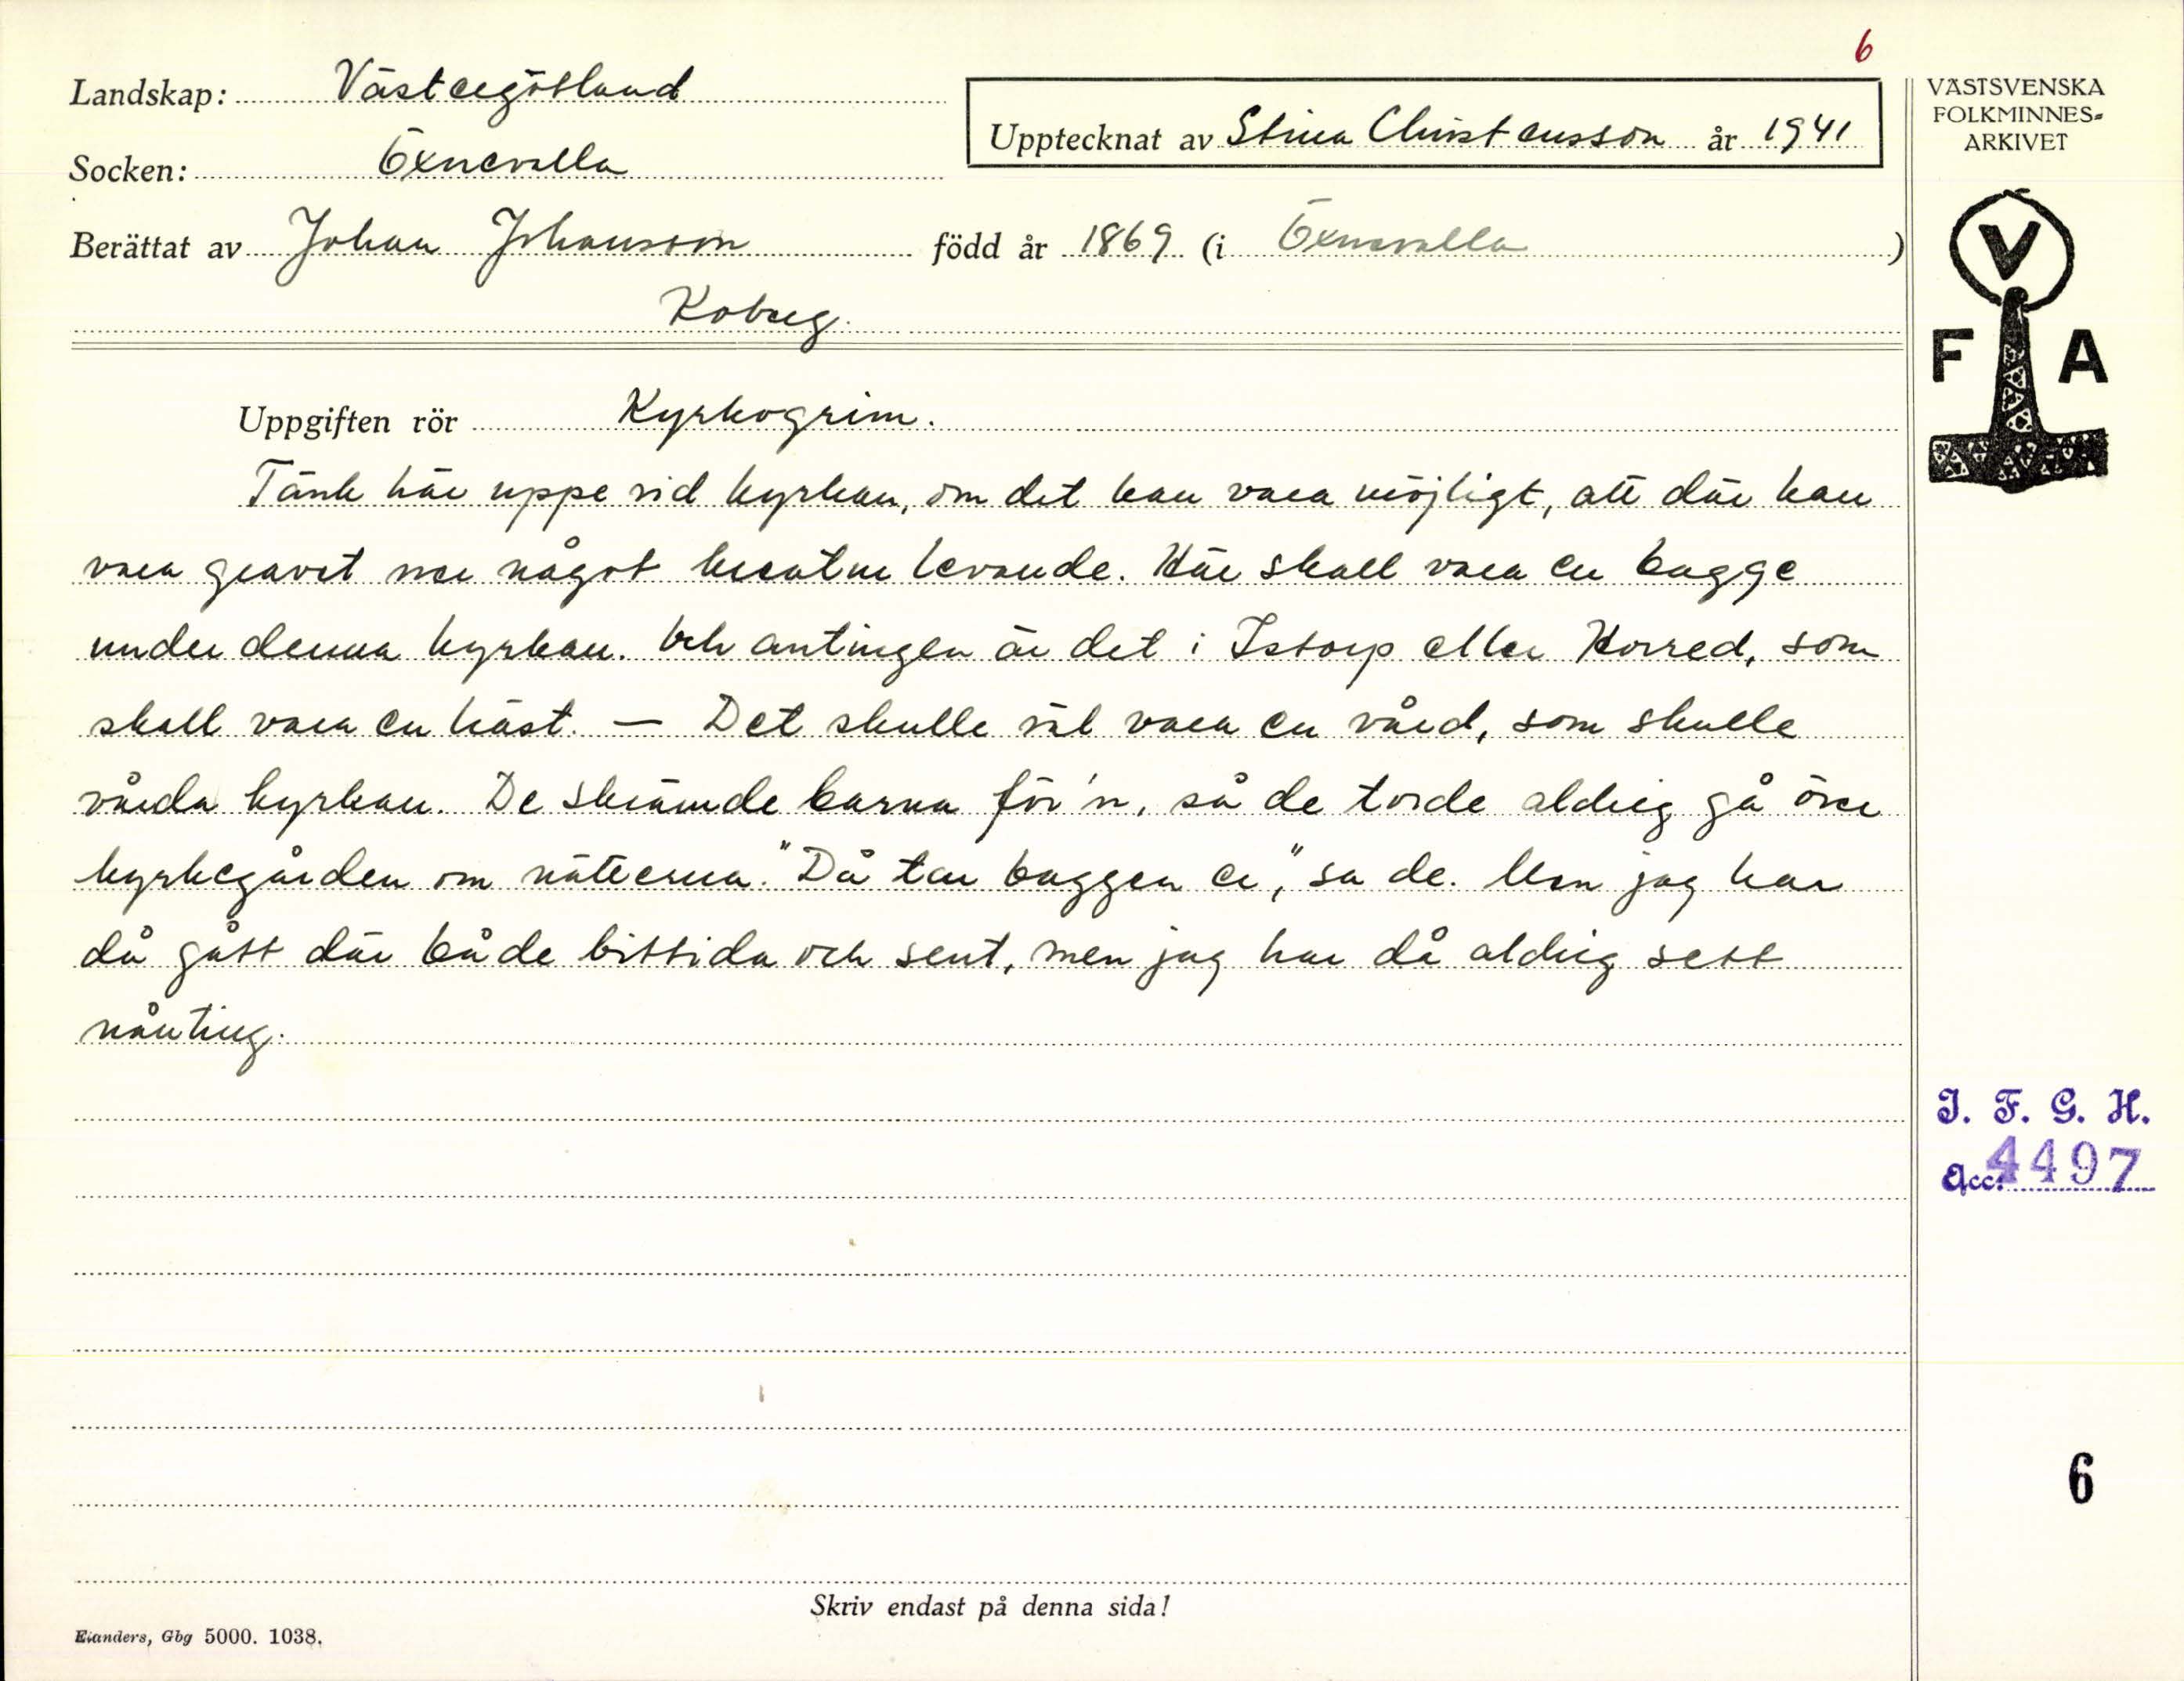 6
Landskap: Västergötland
Socken: Öxnevalla
Upptecknat av Stina Christensson år 1941
Berättat av Johan Johansson född år 1869 (i Öxnevalla)
Koberg.
VÄSTSVENSKA
FOLKMINNES=
ARKIVET
V
F A
Uppgiften rör Kyrkogrim.
Tänk här uppe vid kyrkan, om det kan vara möjligt, att där kan
vara gravet ner något kreatur levande. Här skall vara en bagge
under denna kyrkan. Och antingen är det i Istorp eller Horred, som
skall vara en häst. — Det skulle väl vara en vård, som skulle
vårda kyrkan. De skrämde barna för'n, så de torde aldrig gå över
kyrkegården om nätterna. "Då tar baggen er," sa de. Men jag har
då gått där både bittida och sent, men jag har då aldrig sett
nånting.
I. F. G. H.
Acc. 4497
6
Skriv endast på denna sida!
Elanders, Gbg 5000. 1038.